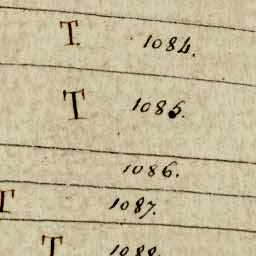 T 1084.
T 1085.
1086.
T 1087.
T 1088.